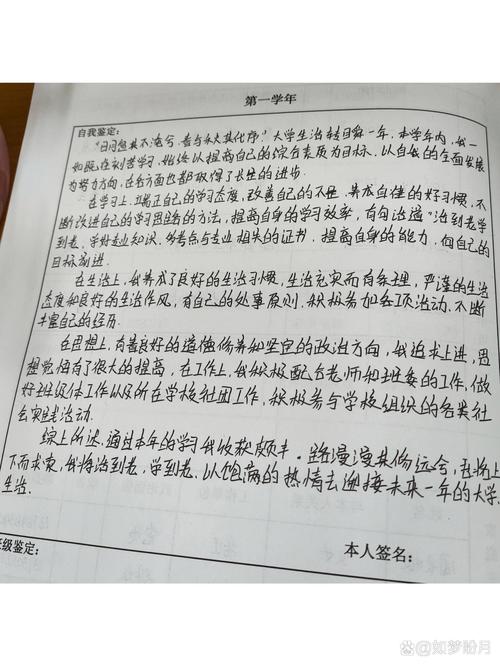 第一学年
自我鉴定:
“日月忽其不淹兮,春与秋其代序。”大学生活转目第一年,本学年内,我一
如既往刻苦学习,始终以提高自己的综合素质为目标,以自我的全面发展
为努力方向,在各方面也都取得了长足的进步。
在学习上,端正自己的学习态度,改善自己的不足,养成自律的好习惯,不
断改进自己的学习思路的方法,提高自身的学习效率,有句活道“活到老学
到老,学好专业知识,多考点与专业相关的证书,提高自身的能力,向自己的
目标前进。
在生活上,我养成了良好的生活习惯,生活充实而有条理,严谨的生活
态度和良好的生活作风,有自己的处事原则,积极参加各项活动,不断
丰富自己的经历.
在思想上,有着良好的道德修养和坚定的政治方向,我追求上进,思
想觉悟有了很大的提高,在工作上,我积极配合老师和班委的工作,做
好班级体工作以及所在学校社团工作,积极参与学校组织的各类社
会实践活动.
综上所述,通过本年的学习我收获颇丰.路漫漫其修远兮,吾将上
下而求索,我将活到老,学到老.以饱满的热情去迎接未来一年的大学
生活.
级鉴定:
本人签名:
百家号/如梦盼月